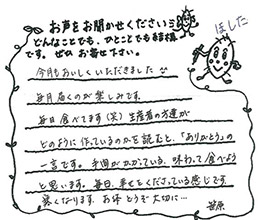 お声をお聞かせください
どんなことでも、ひとことでも結構
です。ぜひ お寄せ下さい。
ほした
今月もおいしくいただきました
毎月届くのが楽しみです。
毎日食べてます(笑) 生産者の方達が
どのように作っているのかを読むと、「ありがとう」の
一言です。手間がかかっている、味わって食べよう
と思います。毎日、幸せをくれている感じです
寒くなります。お体 どうぞ 大切に…